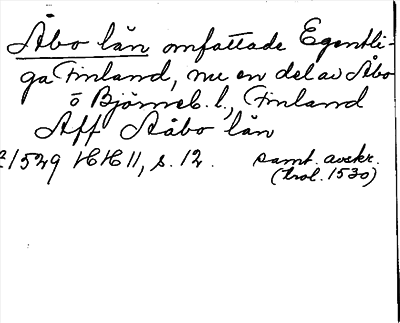 Åbo län omfattade Egentli-
ga Finland, nu en del av Åbo
o Björneb. l., Finland
Aff Aåbo län
1529 HH II, s. 12. samt. avskr.
(trol. 1530)